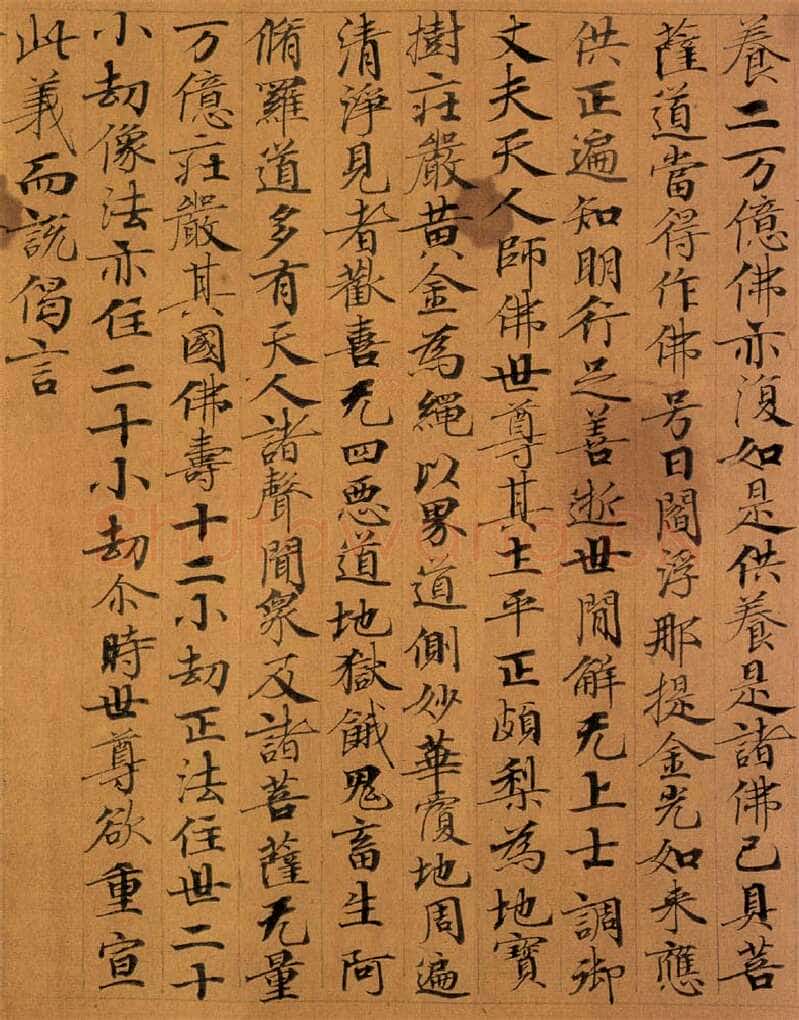 養二万億佛亦復如是供養是諸佛已具菩
薩道當得作佛号曰閻浮那提金光如来應
供正遍知明行足善逝世閒解无上士調御
丈夫天人師佛世尊其土平正頗梨為地寶
樹莊嚴黄金為繩以界道側妙華覆地周遍
清淨見者歡喜无四惡道地獄餓鬼畜生阿
脩羅道多有天人諸聲聞衆及諸菩薩无量
万億莊嚴其國佛壽十二小劫正法住世二十
小劫像法亦住二十小劫尒時世尊欲重宣
此義而說偈言